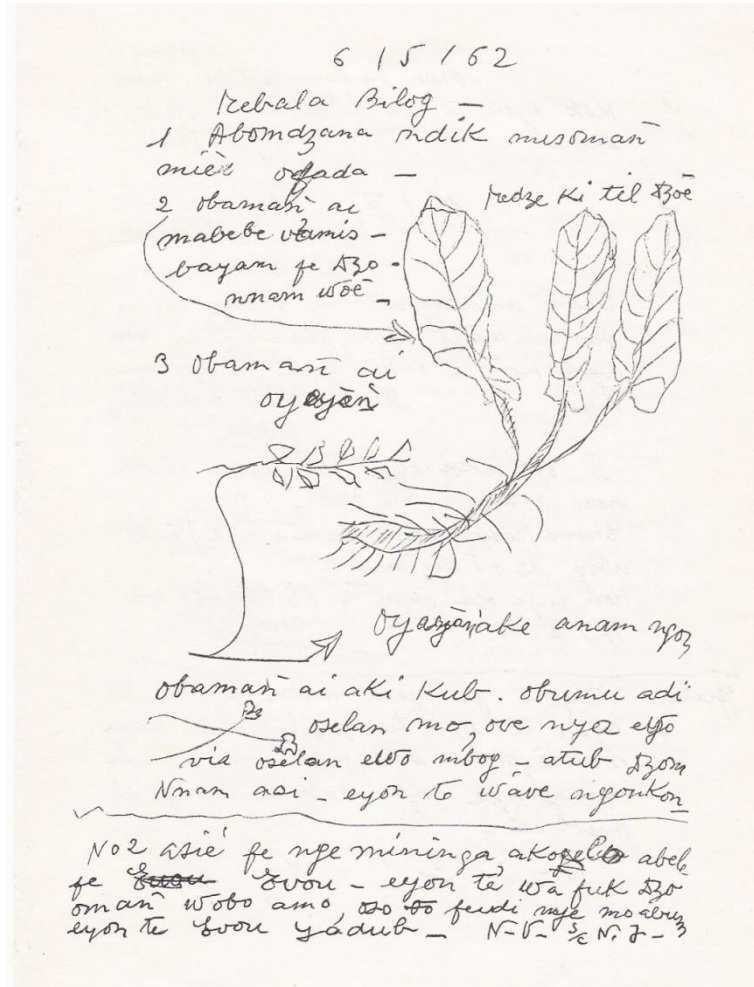 6/5/62
Mebala Bilog –
1 Abomdzana ndik misomañ
miér ofada –
2 obamañ ai
mabebe vamis –
bayam fe Dzo –
nnam wóé –
Medze Ki til Dzóé
3 obamañ ai
oyake anam ngoz
obamañ ai aki Kub . obumu adi
oselan mo, ove nya
via oselan mbog – atub Dzom
Nnam asi – eyon te wáve ngonkon
No2 asié fe nge mininga, abele
fe Evou – eyon te wa fuk Dzo
omañ wobo amo, feudi nge mo abum
eyon te Evou yádub – N-V-